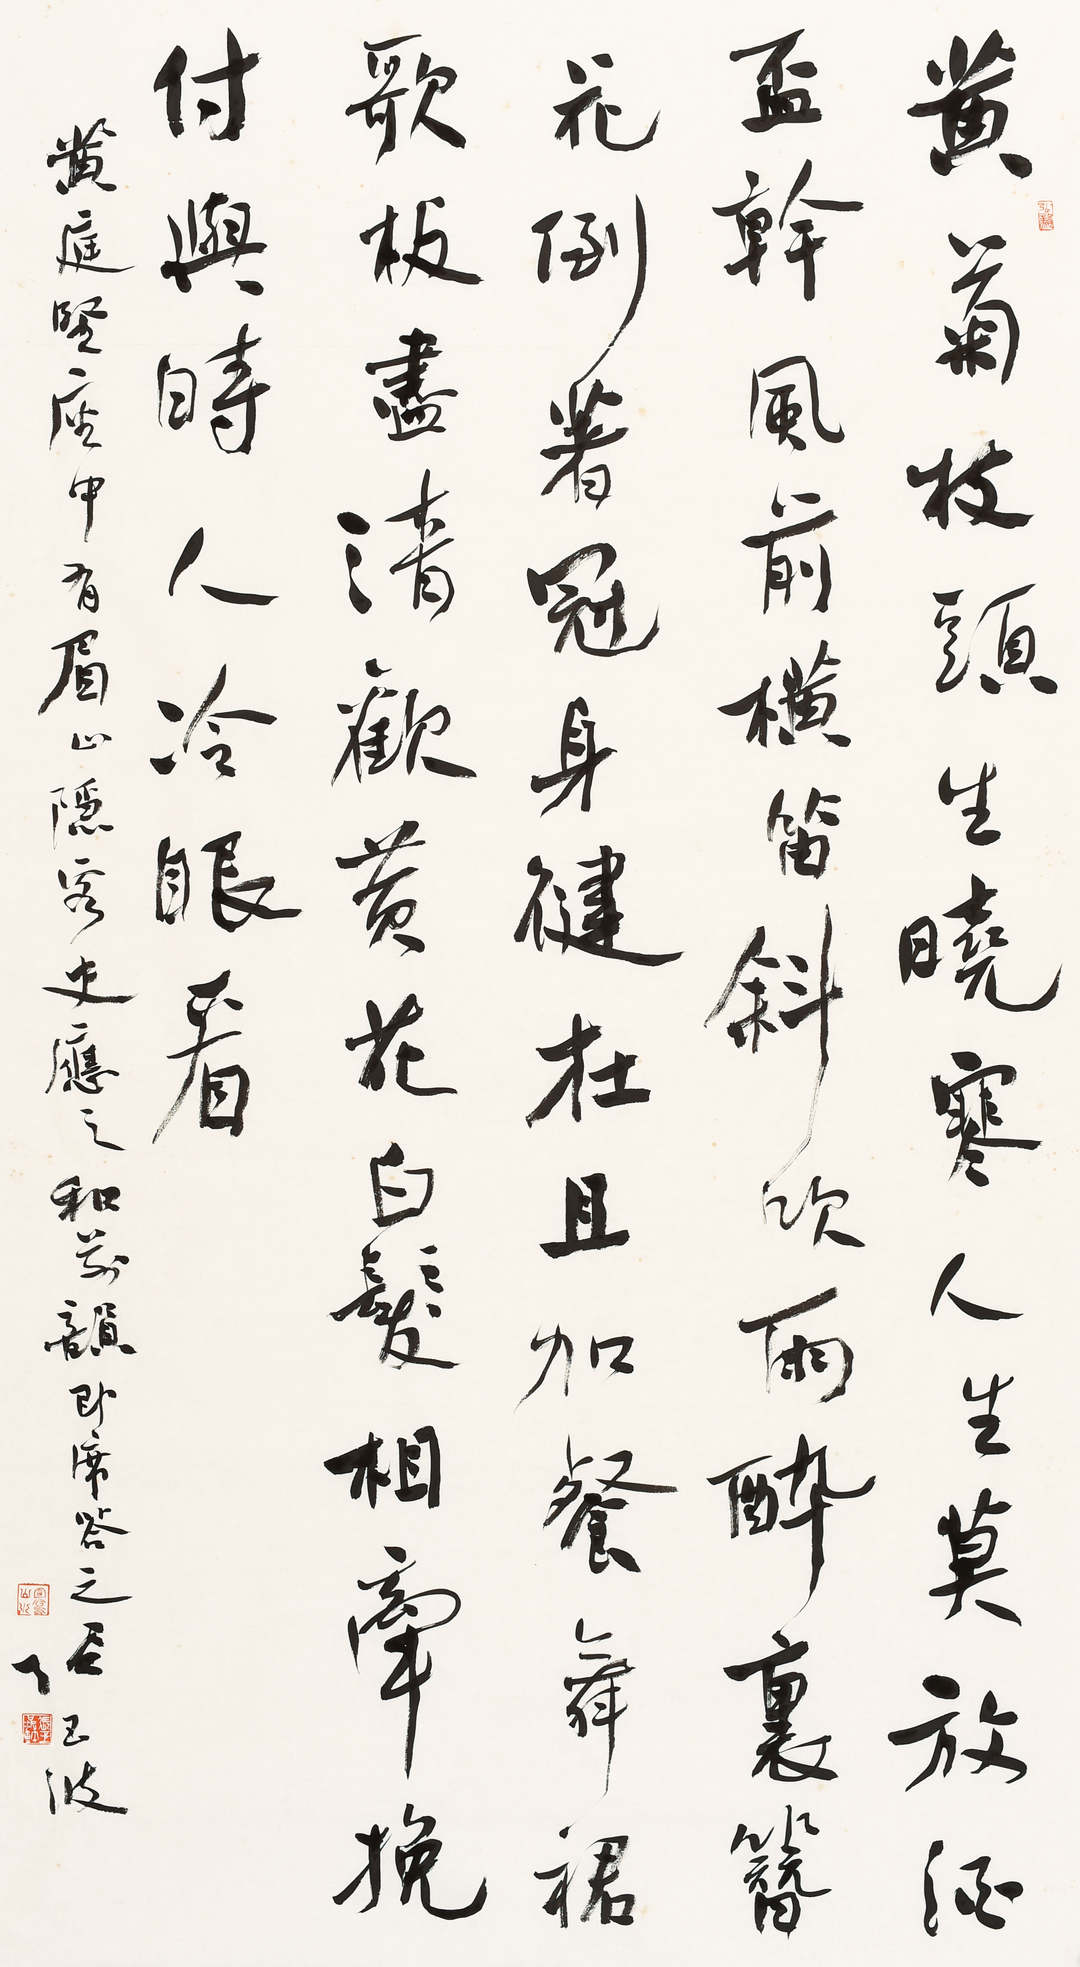 黄菊枝頭生曉寒人生莫放酒
盃幹風前橫笛斜吹雨醉裏簪
花倒著冠身健在且加餐舞裙
歌板盡清歡黄花白髮相牽挽
付與時人冷眼看
黄庭堅座中有眉山隱客史應之和前韻即席答之